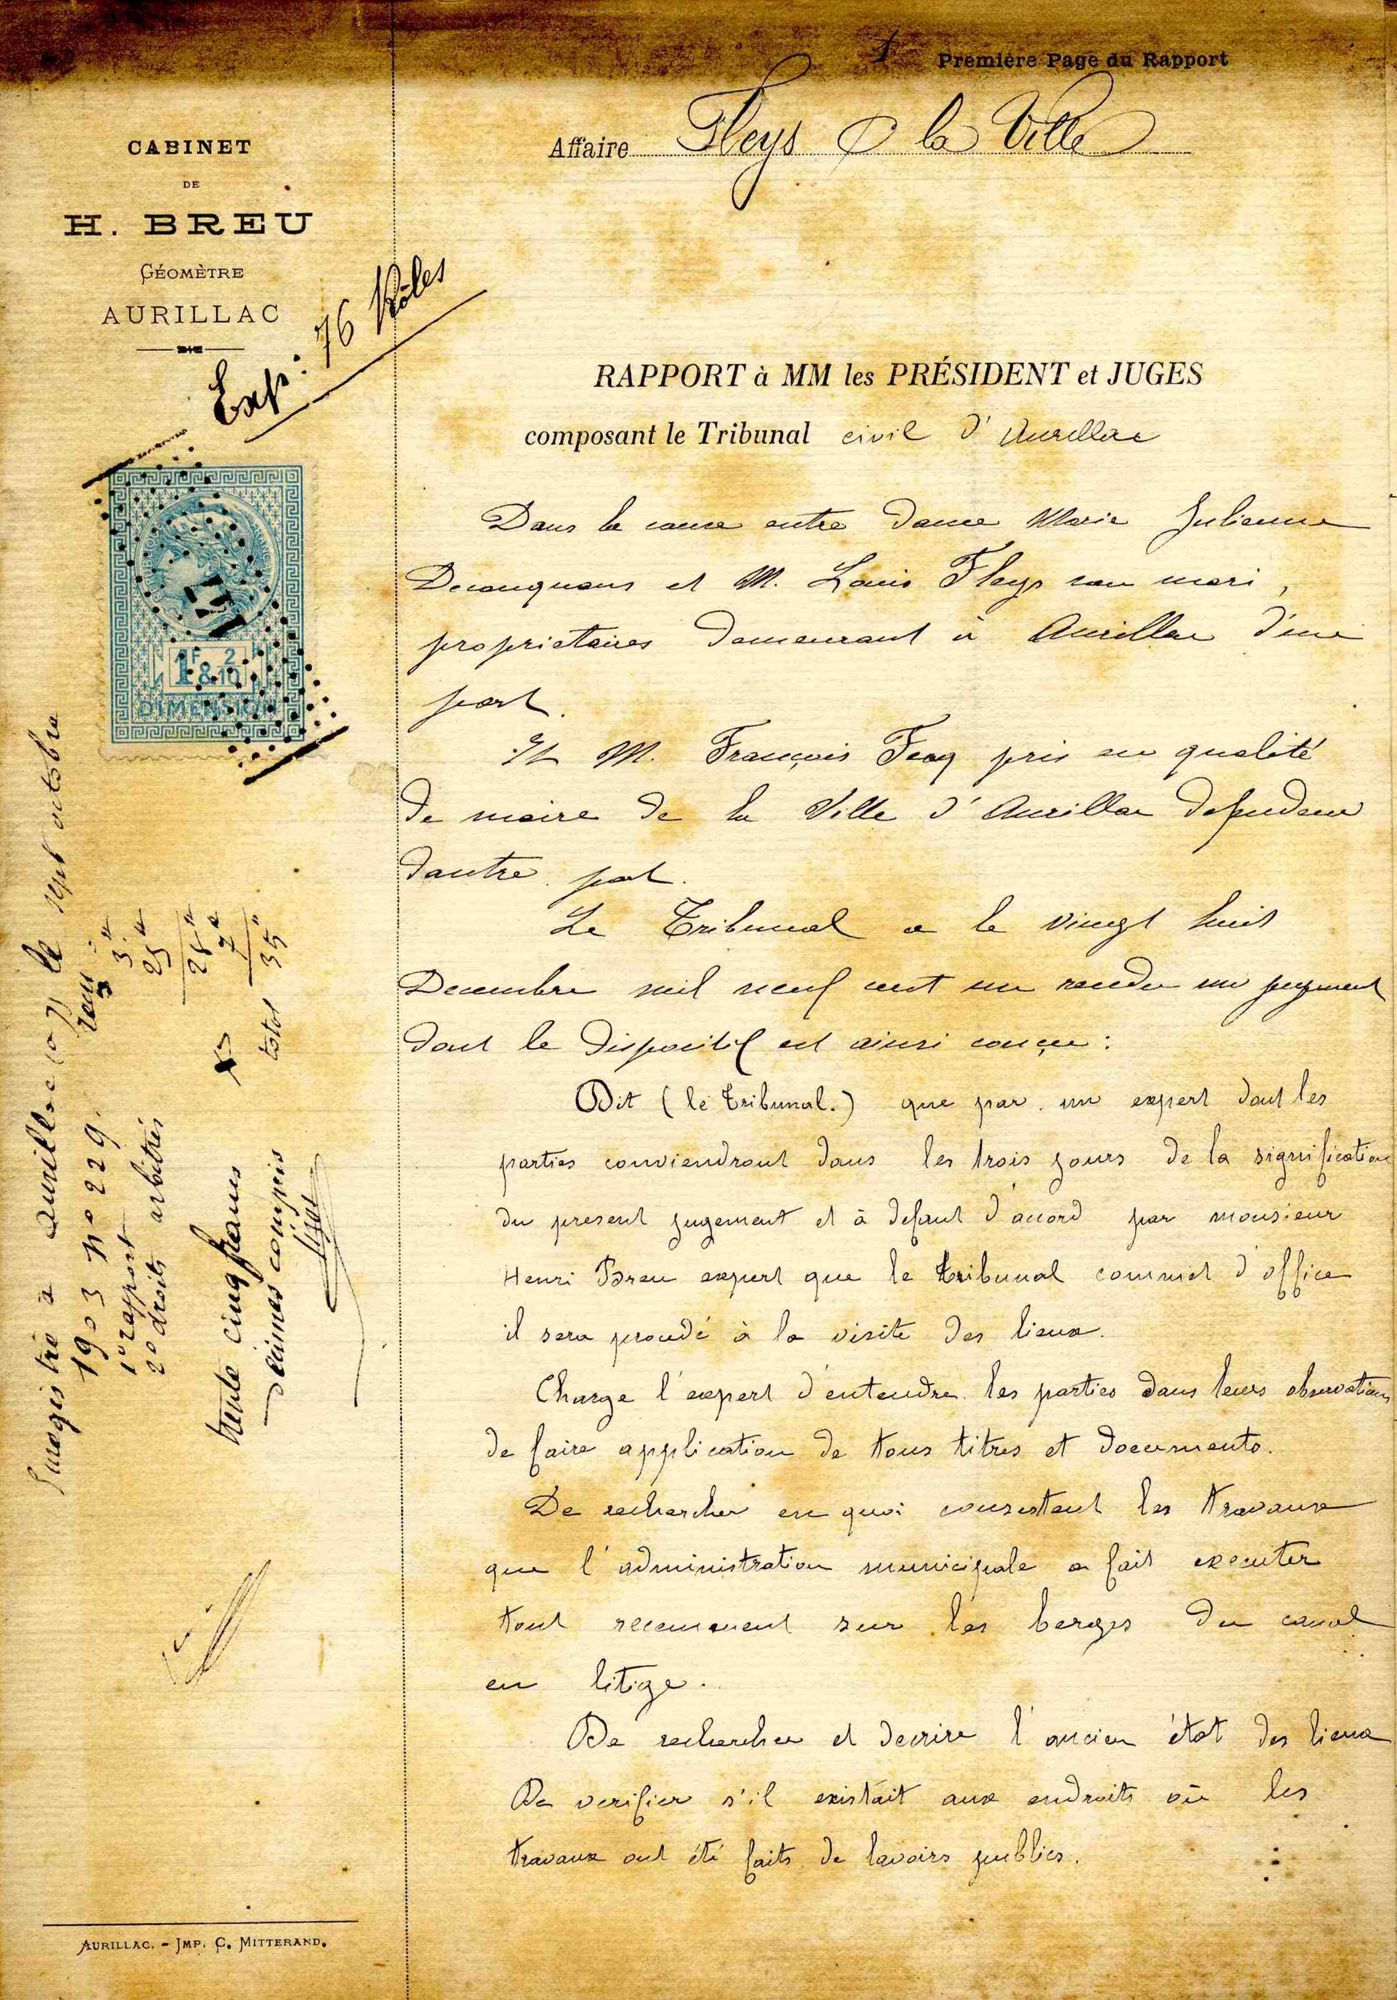 1 Première Page du Rapport
Affaire Fleys & la Ville
CABINET
DE
H. BREU
GÉOMÈTRE
AURILLAC
Exp: 76 Rôles
1F & 2/10
DIMENSION
RAPPORT à MM les PRÉSIDENT et JUGES
composant le Tribunal civil d'Aurillac
Dans la cause entre dame Marie Julienne
et M. Louis Fleys son mari,
propriétaires demeurant à Aurillac d'une
part.
Et M. François Fesq pris en qualité
de maire de la Ville d'Aurillac defendeur
dautre part.
Le Tribunal a le vingt huit
Decembre mil neuf cent un rendu un jugement
dont le dispositif est ainsi conçu :
Dit (le tribunal.) que par un expert dont les
parties conviendront dans les trois jours de la signification
du present jugement et à defaut d'accord par monsieur
Henri Breu expert que le tribunal commet d'office
il sera procédé à la visite des lieux.
Charge l'expert d'entendre les parties dans leurs observations
de faire application de tous titres et documents.
De rechercher en quoi consistent les travaux
que l'administration municipale a fait executer
tout recemment sur les berges du canal
en litige.
De rechercher et decrire l'ancien état des lieux
De verifier s'il existait aux endroits où les
travaux ont été faits de lavoirs publics.
Enregistré à Aurillac le sept octobre
1903 no 229.
1o rapport 3"
2o droits arbitrés 25"
28"
7"
total 35"
trente cinq francs
decimes compris
AURILLAC. - IMP. C. MITTERAND.